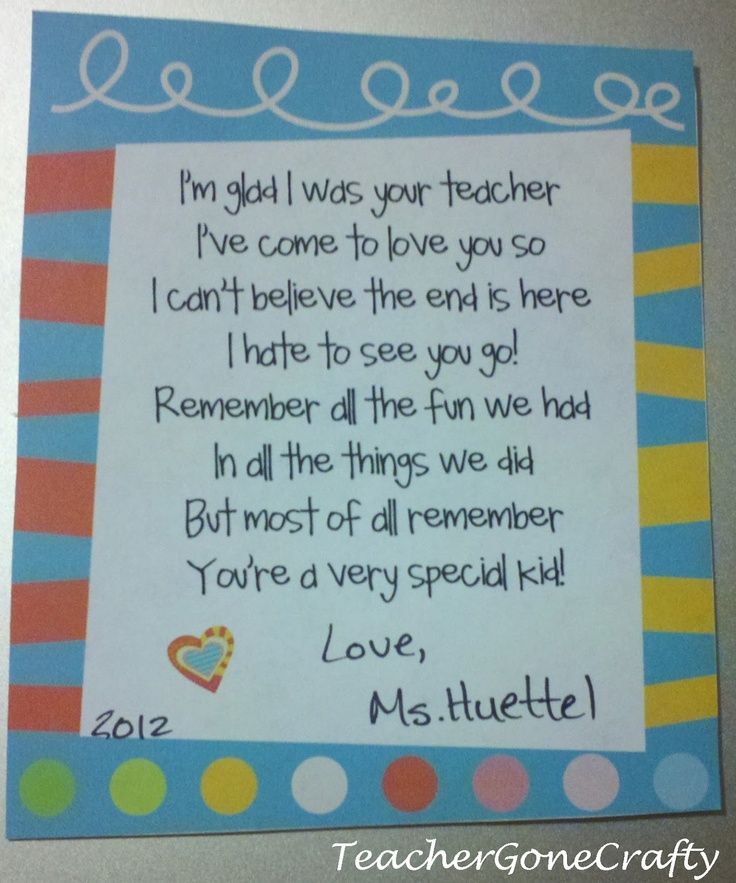 I'm glad I was your teacher
I've come to love you so
I can't believe the end is here
I hate to see you go!
Remember all the fun we had
In all the things we did
But most of all remember
You're a very special kid!
Love,
Ms. Huettel
2012
TeacherGoneCrafty